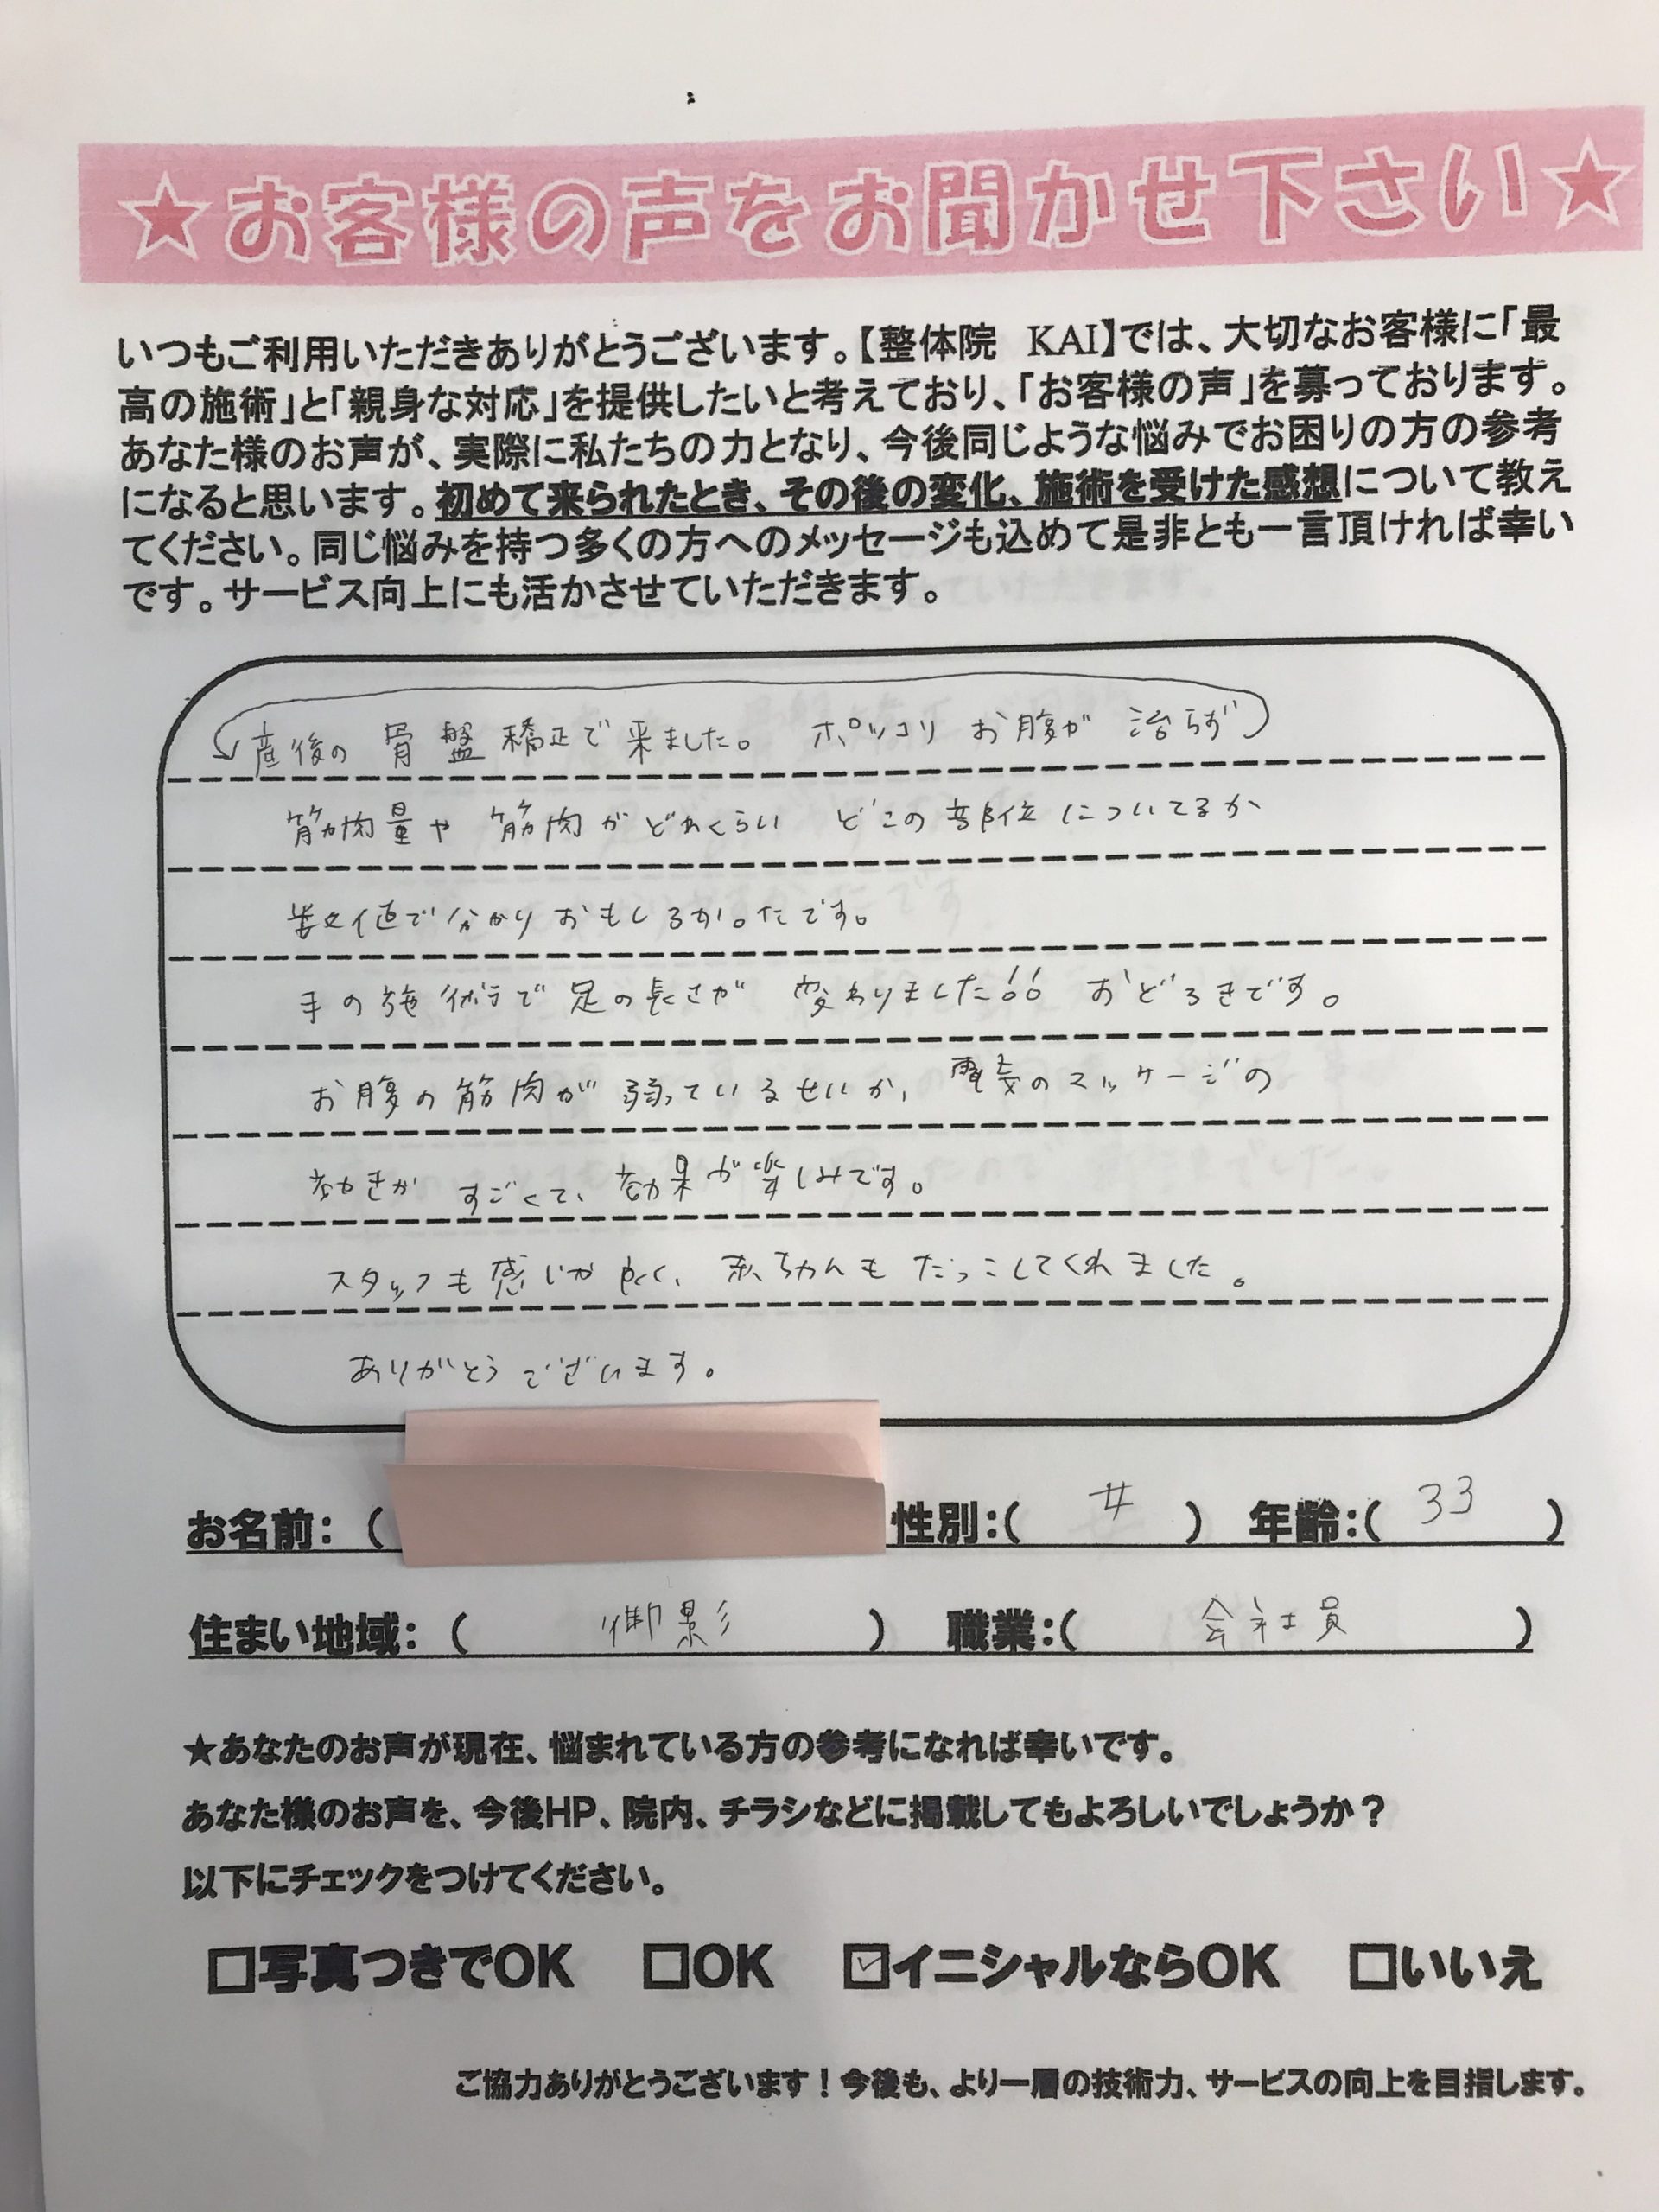 ★お客様の声をお聞かせ下さい★
いつもご利用いただきありがとうございます。【整体院 KAI】では、大切なお客様に「最
高の施術」と「親身な対応」を提供したいと考えており、「お客様の声」を募っております。
あなた様のお声が、実際に私たちの力となり、今後同じような悩みでお困りの方の参考
になると思います。初めて来られたとき、その後の変化、施術を受けた感想について教え
てください。同じ悩みを持つ多くの方へのメッセージも込めて是非とも一言頂ければ幸い
です。サービス向上にも活かさせていただきます。
産後の 骨盤矯正で来ました。 ポッコリ お腹が 治らず
筋肉量や 筋肉がどれくらい どこの部位についてるか
数値で分かりおもしろかったです。
手の施術で足の長さが 変わりました!! おどろきです。
お腹の筋肉が弱っているせいか、電気のマッサージの
効きが すごくて、効果が楽しみです。
スタッフも感じが良く、赤ちゃんもだっこしてくれました。
ありがとうございます。
お名前：（ 性別：（ 女 ） 年齢：（ 33 ）
住まい地域：（ 御影 ） 職業：（ 会社員 ）
★あなたのお声が現在、悩まれている方の参考になれば幸いです。
あなた様のお声を、今後HP、院内、チラシなどに掲載してもよろしいでしょうか？
以下にチェックをつけてください。
□写真つきでOK □OK ☑イニシャルならOK □いいえ
ご協力ありがとうございます！今後も、より一層の技術力、サービスの向上を目指します。